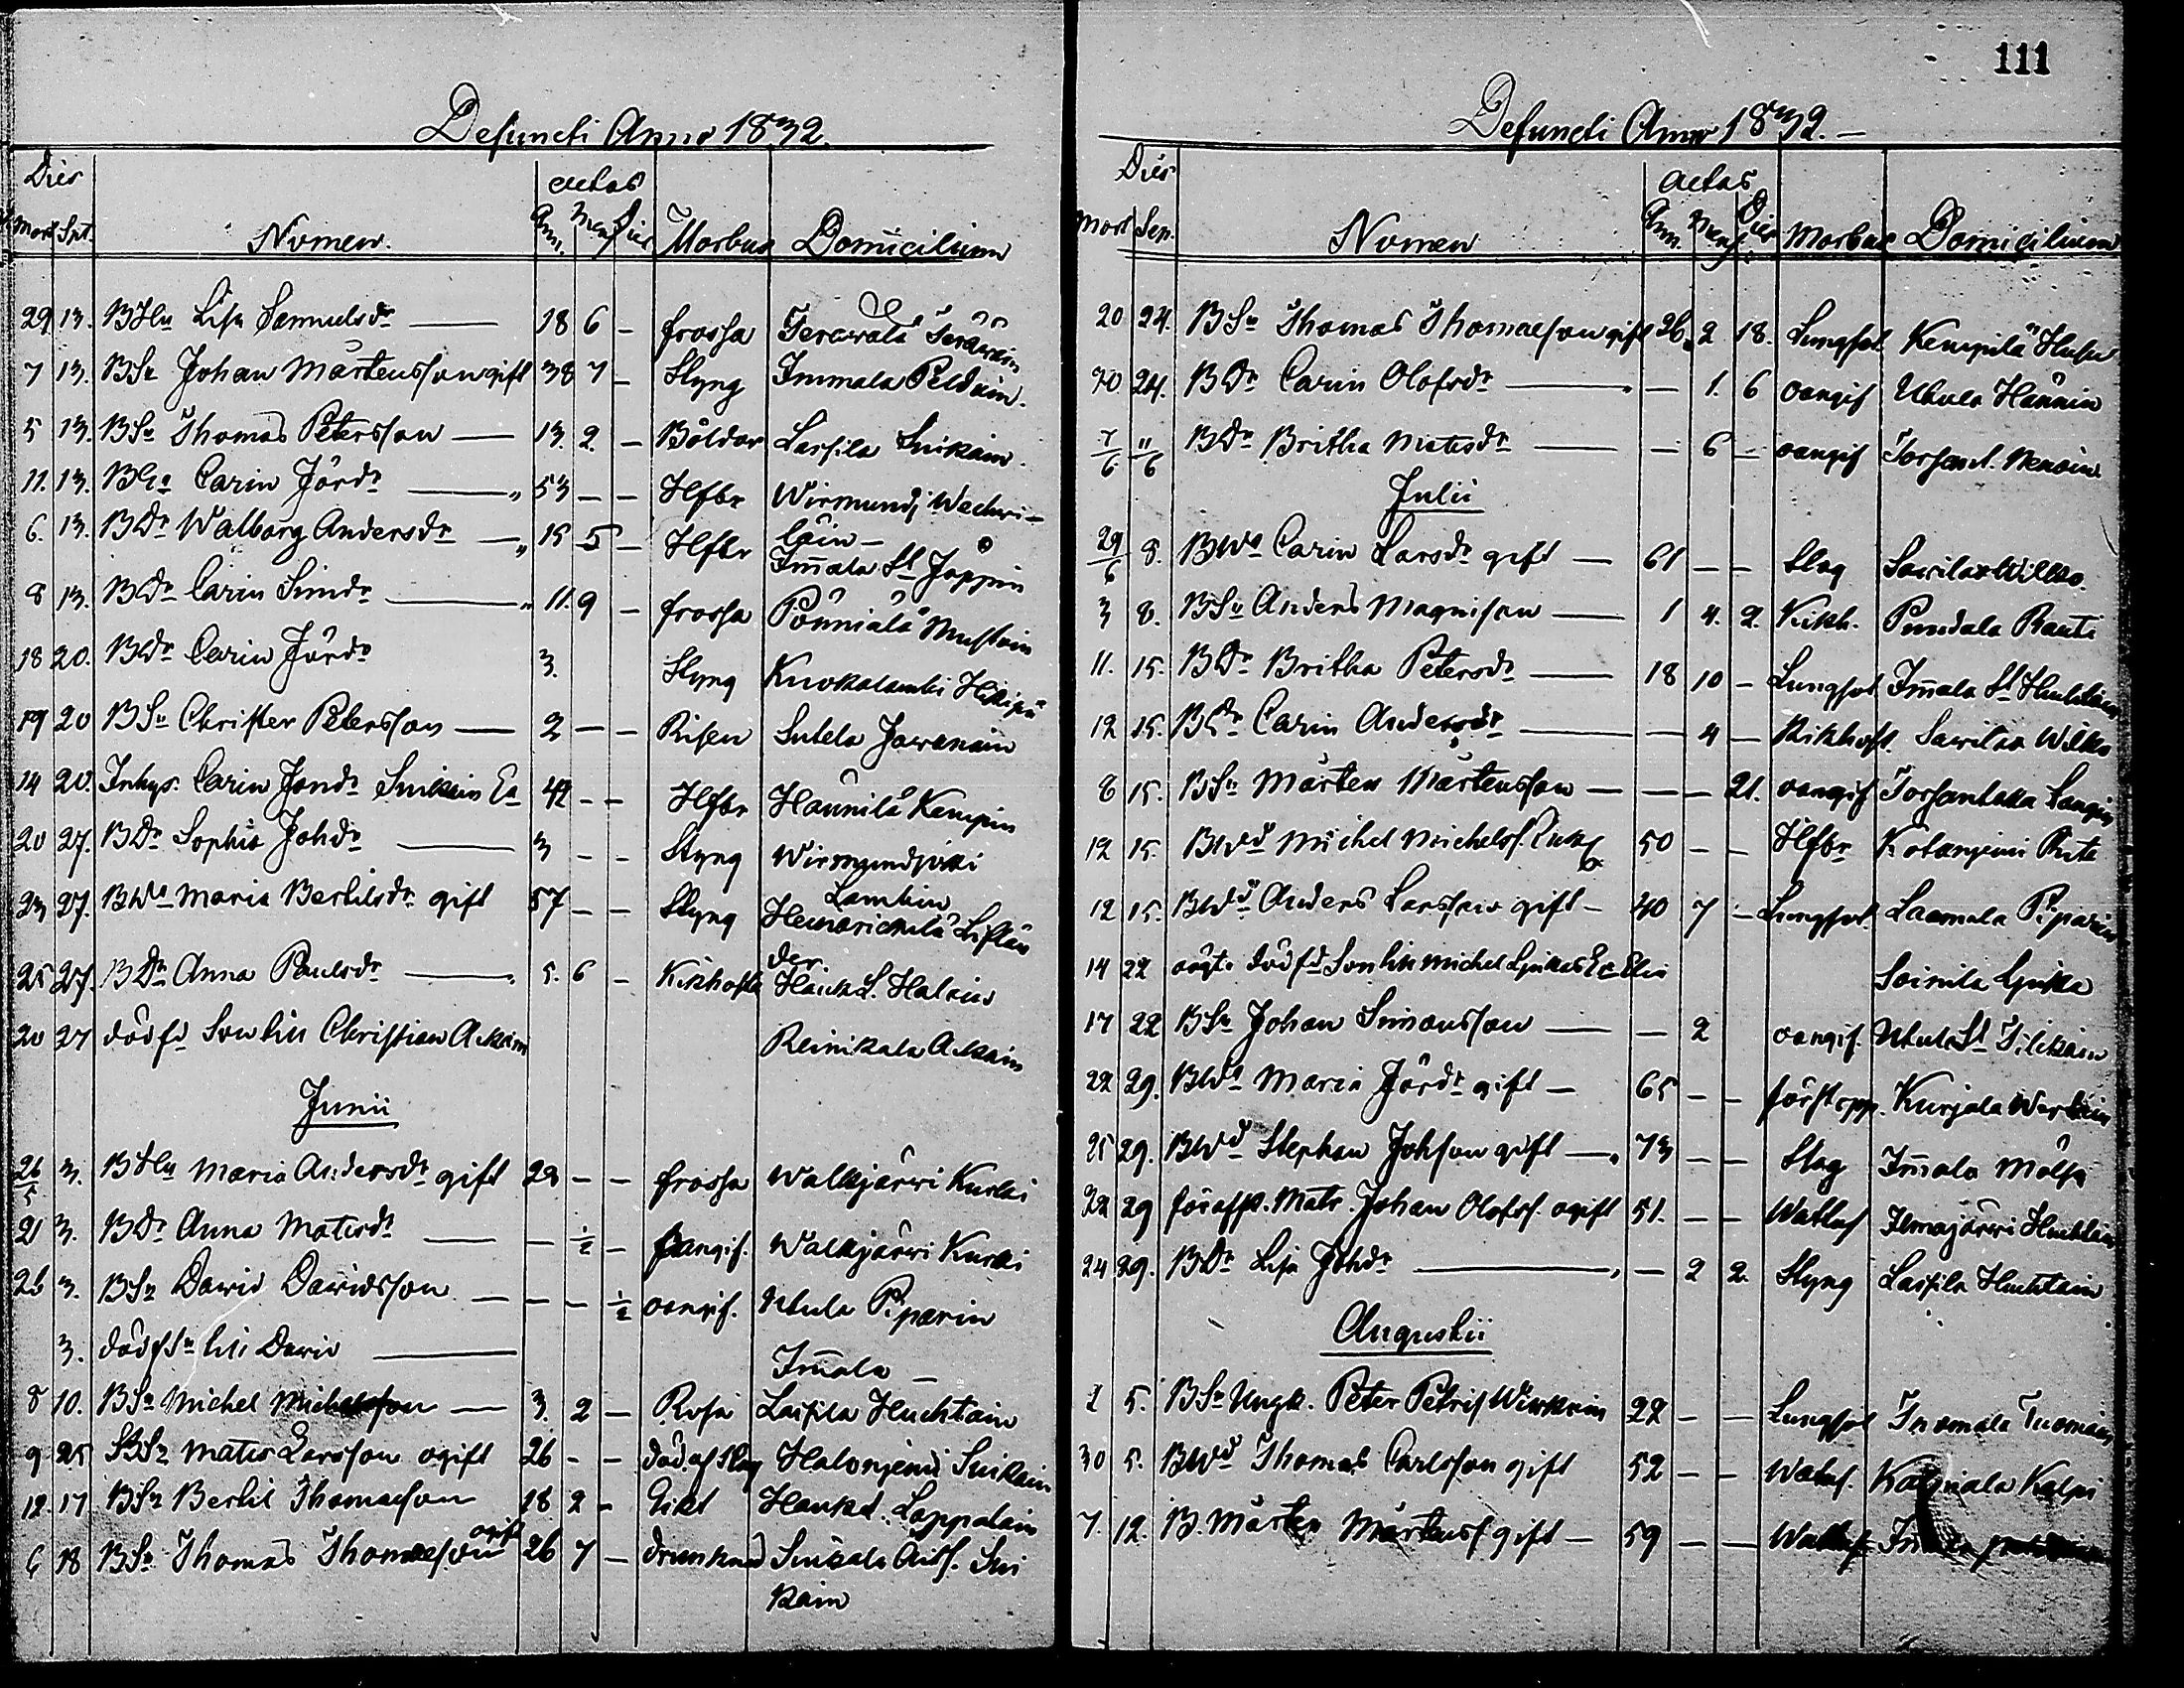 111
Defuncti Anno 1832.
Dies aetas
Mort Spt. Nomen. Ann. Mens Dies Morbus Domicilium
29 13. BHu Lisa Samuelsdr — 18 6 — frossa Terävälä Teräväin
7 13. BSn Johan Mårtensson gift 38 7 — Styng Immala Peldoin.
5 13. BSn Thomas Petersson — 13. 2. — Båldar Laihila Suikain.
11. 13. Carin Jördr — 53 — — Hfbr Wirmundj Wechvi-
läin —
6. 13. BDr Walborg Andersdr — 15 5 — Hfbr Im̄ala St Jäppin
8 13. BDr Carin Simdr — 11. 9 — frossa Pönniälä Mustoin
18 20. BDr Carin Jördr 3. Styng Kuokalambi
19 20 BSn Christer Petersson — 2 — — Risen Sutela Jawanain
14 20. Inhys. Carin Jondr Suikain Ea 42 — — Hfbr Hannila Kempin
20 27. BDr Sophia Johdr — 3 — — Styng Wirmundjoki
Lambin
23 27. BWa Maria Bertilsdr gift 57 — — Styng Heinorickilä Liflän
der
25 27. BDr Anna Paulsdr — 5. 6 — Kikhosta Hauk S. Halain
20 27 dödfd Son till Christian Ackain Reinikala Ackain
Junii
26/5 3. BHu Maria Andersdr gift 22 — — frossa Walkjärwi Kurki
21 3. BDr Anna Matsdr — — ½ — oangif. Walkjärwi Kurki
26 3. BSn David Davidsson — — — ½ oangif. Utula Piparin
3. dödf Sn till David — Im̄ala —
8 10. BSn Michel Michelsson — 3. 2 — Rosa Laihila Huchtain
9 25 BSn Mats Larsson ogift 26 — — död af Slag Halonjemi Suikain
12. 17 BSn Bertil Thomasson 18 2 — Gikt Haukd. Lappalain
6 18 BSn Thomas Thomasson ogift 26 7 — drunknad Suikala Sui
kain
Defuncti Anno 1832. —
Dies aetas
Mort Sep. Nomen Ann. Mens. Dies Morbus Domicilium
20 24. BSn Thomas Thomasson gift 26 2 18. Lungsot Kempilä Husu
20. 24. BDr Carin Olofsdr — — 1. 6 oangif Utula Hännin
7/6 "/6 BDr Britha Matsdr — — 6 — oangif Torsant. Nenoin
Julii
29/6 8. BWa Carin Larsdr gift — 61 — — Slag Sawilax Wilko.
3 8. BSn Anders Magnison — 1 4. 2. Kikh. Pundala Rauti
11. 15. BDr Britha Petersdr — 18 10 — Lungsot Im̄ala St Huchtain
12 15. BDr Carin Andersdr — — 4 — Kikhost Sawilax Wilko
8 15. BSn Mårten Mårtensson — — — 21. oangif Torsantaka Sangin
12 15. BWd Michel Michelss. 50 — — Hfbr Kotanjemi Rita
12 15. BWd Anders Larsson gift — 40 7 — Lungsot Laamala Piparin
14 22 oägta dödfd Son till Michel Ljukas Ea Elin Soinila Ljukka
17 22 BSn Johan Simonsson — — 2 oangif. Utula St Tilikain
22 29. BWa Maria Jördr gift — 65 — — förstopp. Kurjala Warkain
25 29. BWd Stephan Johsson gift — 73 — — Slag Im̄ala Mölsä
22 29 förafsk. Matr. Johan Olofss. ogift 51. — — Wattus Ilmajärwi Huchtain
24 29. BDr Lisa Johdr — — 2 2. Styng Laihila Huchtain
Augustii
1 5. BSn Ungk. Peter Petris Wirkain 22 — — Lungsot Tuomala Tuomain
30 5. BWd Thomas Carlsson gift 52 — — Watus. Kalpiala Kalpi
7. 12. B. Mårten Mårtenss gift — 59 — — Wattus